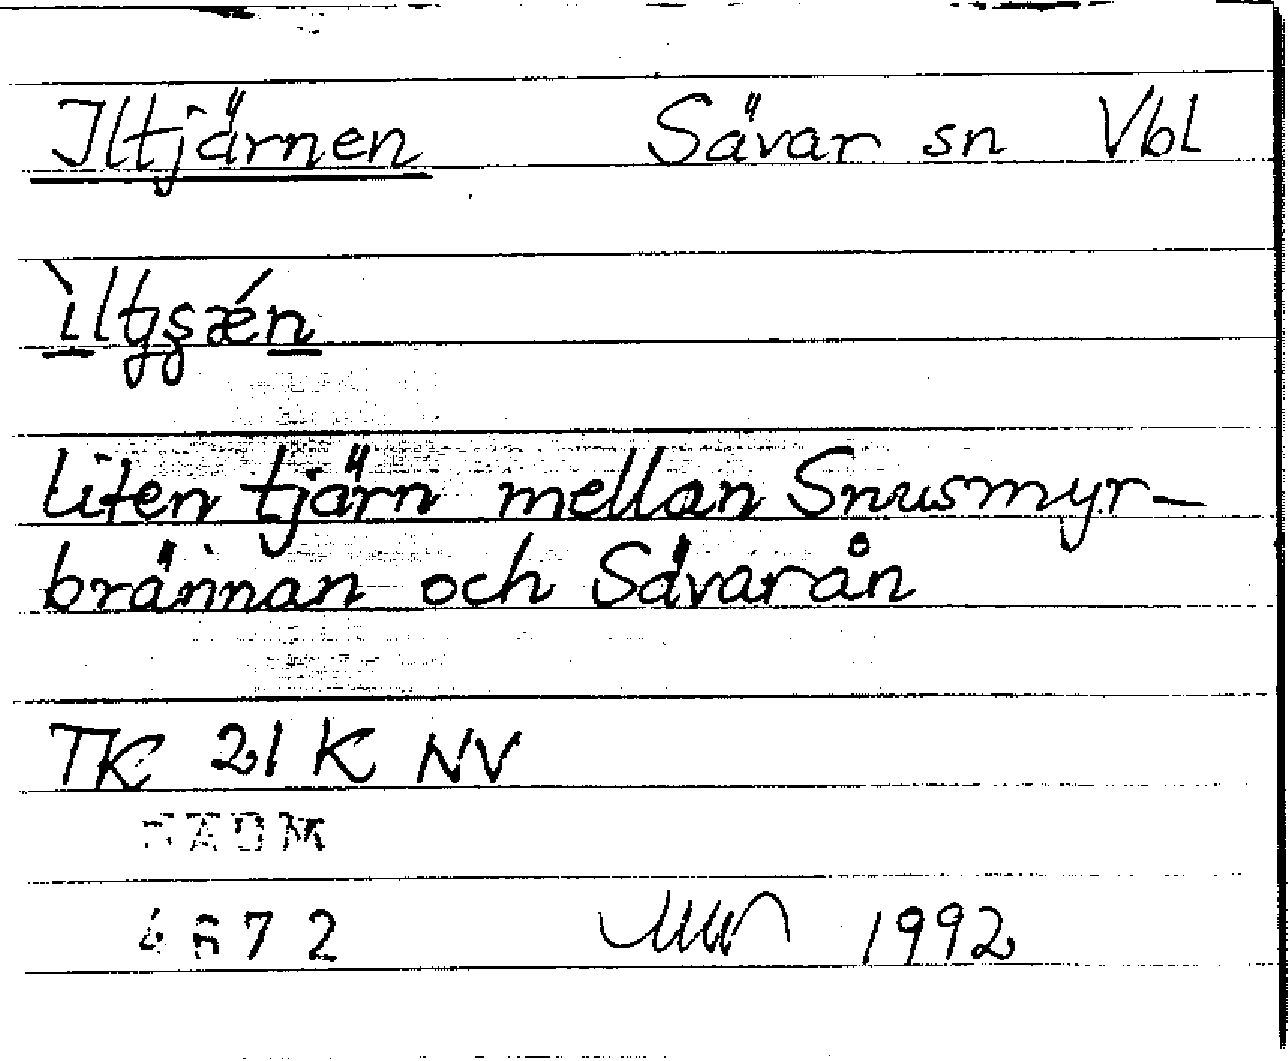 Iltjärnen Sävar sn Vbl
liten tjärn mellan Snusmyr-
brännan och Sävarån
TK 21 K NV
DAUM
4672
1992